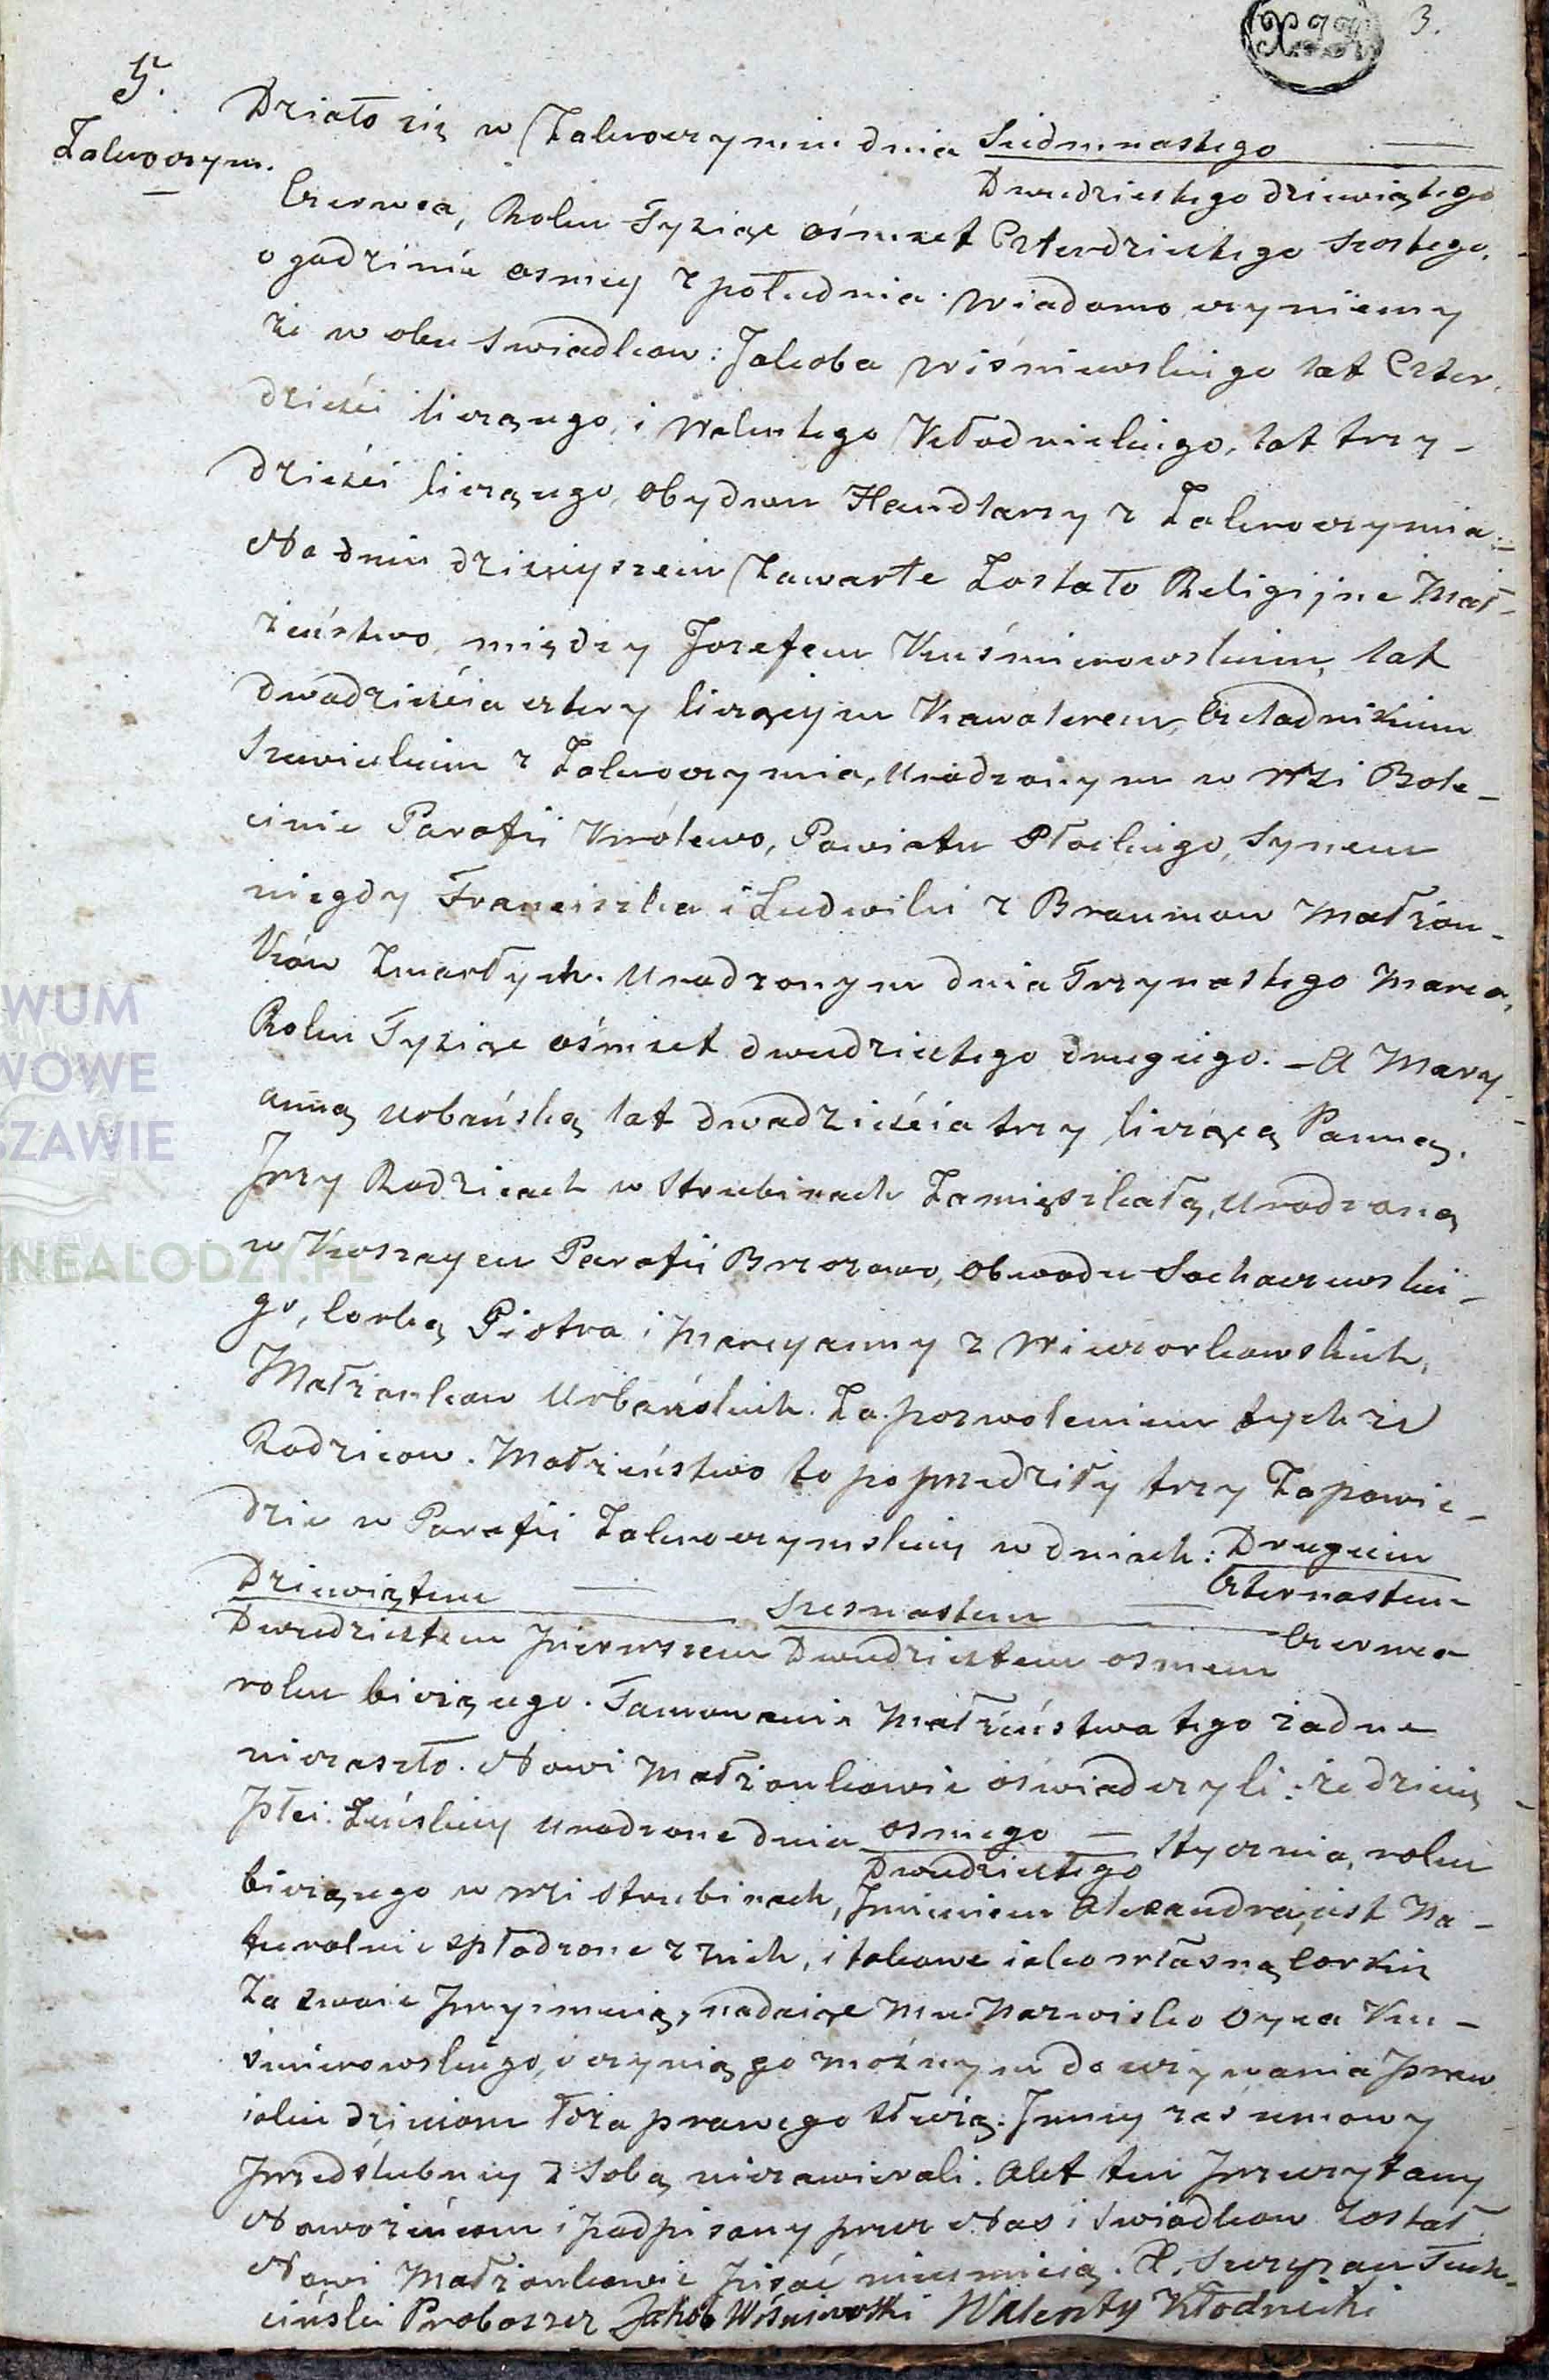 3.
5.
Zakroczym.
Działo się w Zakroczymiu dnia Siedmnastego
Dwudziestego dziewiątego
Czerwca, Roku Tysiąc ośmset Czterdziestego szostego.
o godzinie osmey z południa. Wiadomo czyniemy
że w obec Swiadkow: Jakoba Wiśniewskiego lat Czter-
dzieści liczącego, i Walentego Kłodnickiego, lat trzy-
dzieści liczącego, obydwu Handlarzy z Zakroczymia.
Na dniu dzisieyszem Zawarte Zostało Religijne Mał-
żeństwo, między Jozefem Kuśmierowskim, lat
dwadzieścia cztery liczącym Kawalerem, Czeladnikiem
Szewieckim z Zakroczymia, Urodzonym w Wsi Bole-
cinie Parafii Królewo, Powiatu Płockiego, Synem
niegdy Franciszka i Ludwiki z Braunow Małżon-
ków Zmarłych. Urodzonym dnia Trzynastego Marca,
Roku Tysiąc ośmset dwudziestego drugiego. – A Mary-
anną Urbańską lat dwadzieścia trzy liczącą Panną.
Przy Rodzicach w Strubinach Zamięszkałą, Urodzoną
w Koszaycu Parafii Brzozowo, Obwodu Sochaczewskie-
go, Corką Piotra i Maryanny z Wieczorkowskich,
Małżonkow Urbańskich. Za pozwoleniem tychże
Rodzicow. Małżeństwo to poprzedziły trzy Zapowie-
dzie w Parafii Zakroczymskiey w dniach: Drugiem
Czternastem
Dziewiątem Szesnastem
Dwudziestem Pierwszem Dwudziestem osmem Czerwca
roku bieżącego. Tamowanie Małżeństwa tego żadne
niezaszło. Nowi Małżonkowie oświadczyli: że dziecię
Płci Żeńskiey Urodzone dnia osmego Stycznia, roku
Dwudziestego
bieżącego w wsi Strubinach, Jmieniem Alexandra, jest Na-
turalnie spłodzone z nich, i takowe iako własną Corkię
Za swoie Przyimuią, nadaiąc Mu Nazwisko Oyca Ku-
śmierowskiego, i czynią go możnym do używania praw
iakie dzieciom łoża prawego służą. Jnney zaś umowy
Przedślubney z Sobą niezawierali. Akt ten Przeczytany
Nowożeńcom i Podpisany przez Nas i Swiadkow Został
Nowi Małżonkowie Pisać nieumieią. X. Szczepan Tuch-
ciński Proboszcz Jakob Wiśniewski Walenty Kłodnicki
WUM
WOWE
SZAWIE
NEALODZY.PL